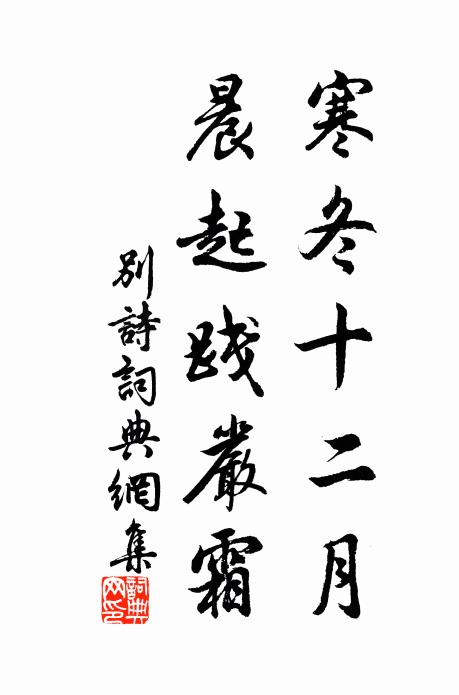 寒冬十二月
晨起踐嚴霜
別詩詞典網集
詞典网印